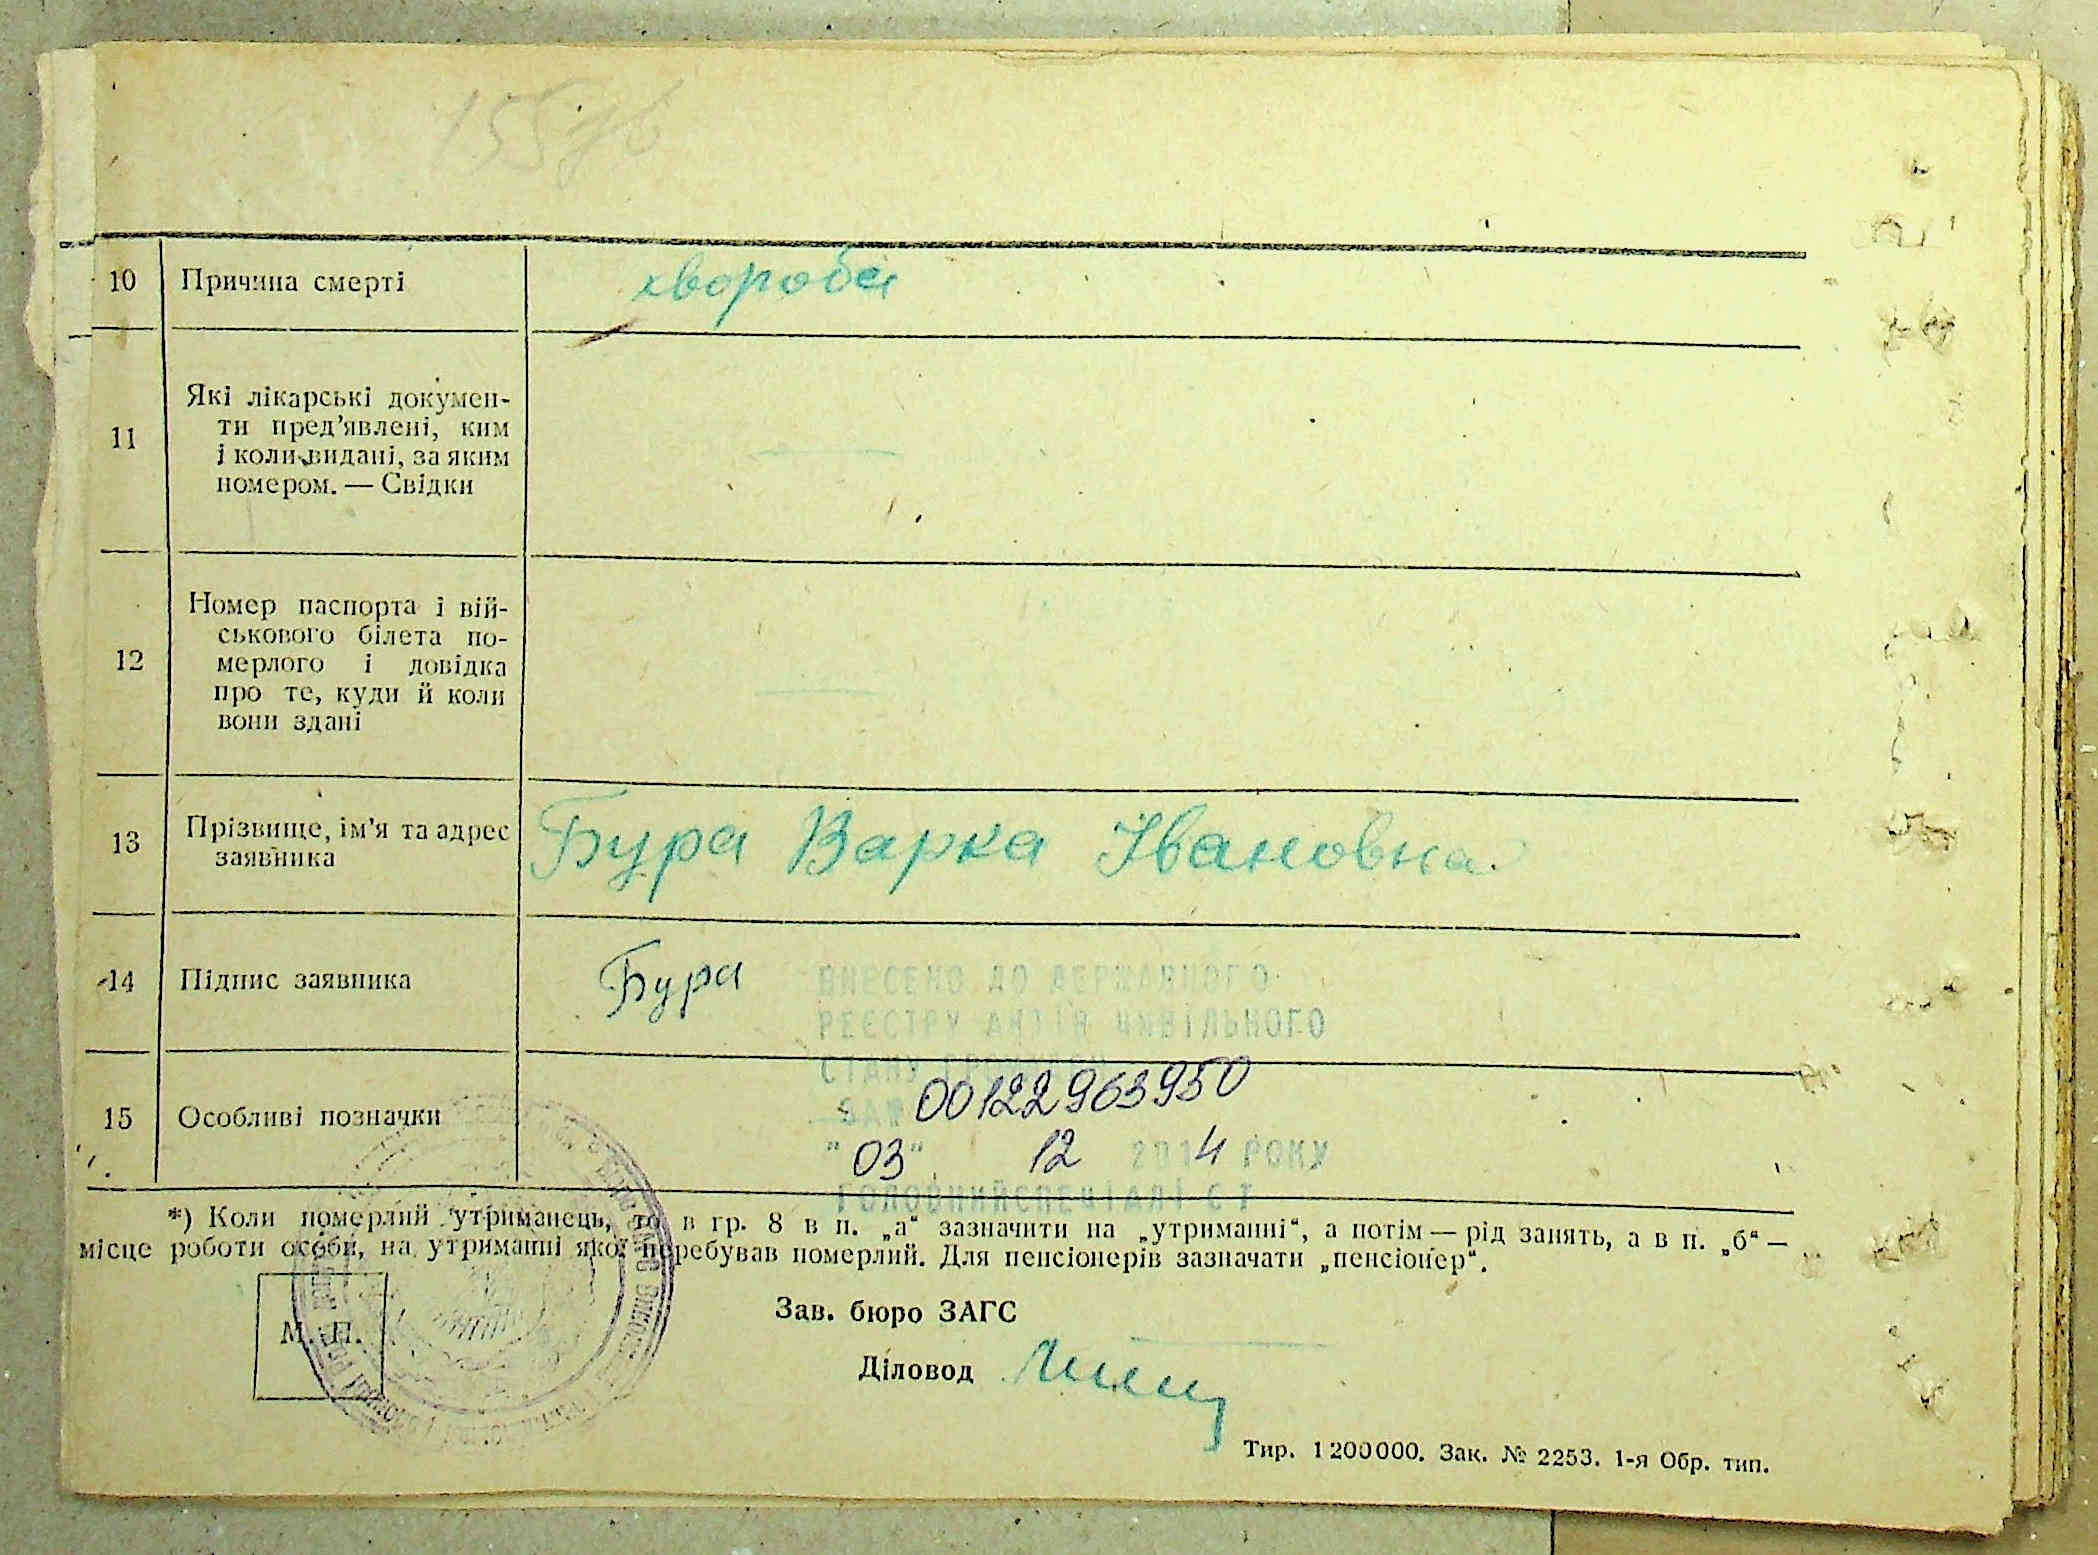 10 Причина смерті хвороба
11 Які лікарські докумен-
ти пред'явлені, ким
і коли видані, за яким
номером. — Свідки
12 Номер паспорта і вій-
ськового білета по-
мерлого і довідка
про те, куди й коли
вони здані
13 Прізвище, ім'я та адрес
заявника
Бура Варка Івановна
14 Підпис заявника Бура
ВНЕСЕНО ДО ДЕРЖАВНОГО
РЕЄСТРУ АКТІВ ЦИВІЛЬНОГО
СТАНУ ГРОМАДЯН
15 Особливі позначки
00122963950
"03" 12 2014 РОКУ
ГОЛОВНИЙ СПЕЦІАЛІСТ
*) Коли померлий утриманець, то в гр. 8 в п. „а“ зазначити на „утриманні“, а потім — рід занять, а в п. „б“ —
місце роботи особи, на утриманні якої перебував померлий. Для пенсіонерів зазначати „пенсіонер“.
М. П.
Зав. бюро ЗАГС
Діловод
Тир. 1200000. Зак. № 2253. 1-я Обр. тип.